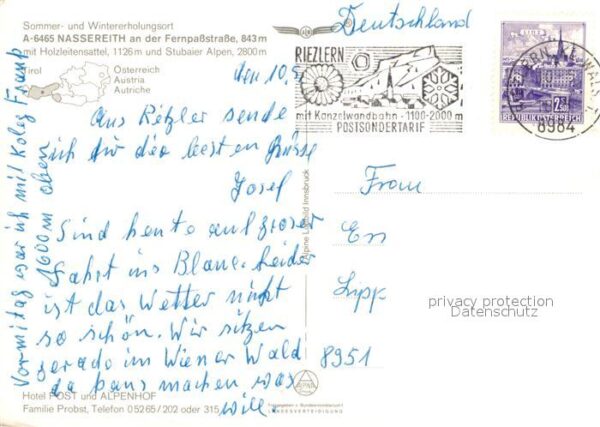 Sommer- und Wintererholungsort
A-6465 NASSEREITH an der Fernpaßstraße, 843 m
mit Holzleitensattel, 1126 m und Stubaier Alpen, 2800 m
Tirol
Österreich
Austria
Autriche
Deutschland
RIEZLERN
mit Kanzelwandbahn - 1100-2000 m
POSTSONDERTARIF
8984
REPUBLIK ÖSTERREICH
den 10.
Aus Ritzler sende
ich dir die besten Grüse
Josef
Sind heute auf groser
Fahrt ins Blaue. Leider
ist das Wetter nicht
so schön. Wir sitzen
gerade im Wiener Wald
da kans machen was
will.
Vormitag war ich mit Koleg Franz
1600 m oben
Frau
En
Lipp
8951
privacy protection
Datenschutz
Alpine Luftbild Innsbruck
Hotel POST und ALPENHOF
Familie Probst, Telefon 0 52 65 / 202 oder 315
Freigegeben v. Bundesministerium f.
LANDESVERTEIDIGUNG